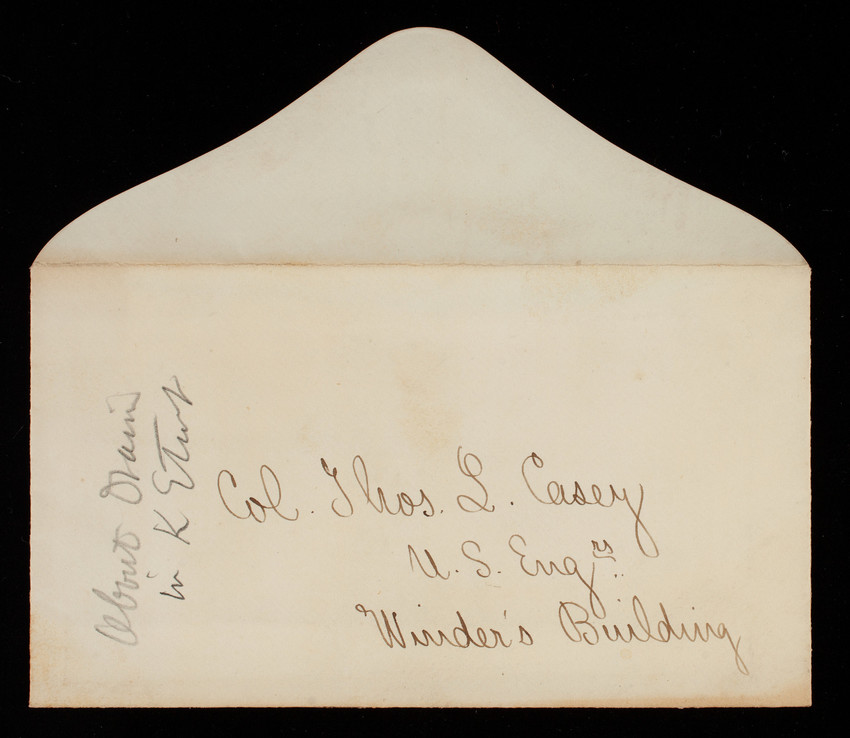 Col. Thos. L. Casey
U. S. Engrs.
Winder's Building
About Drain
in K Street